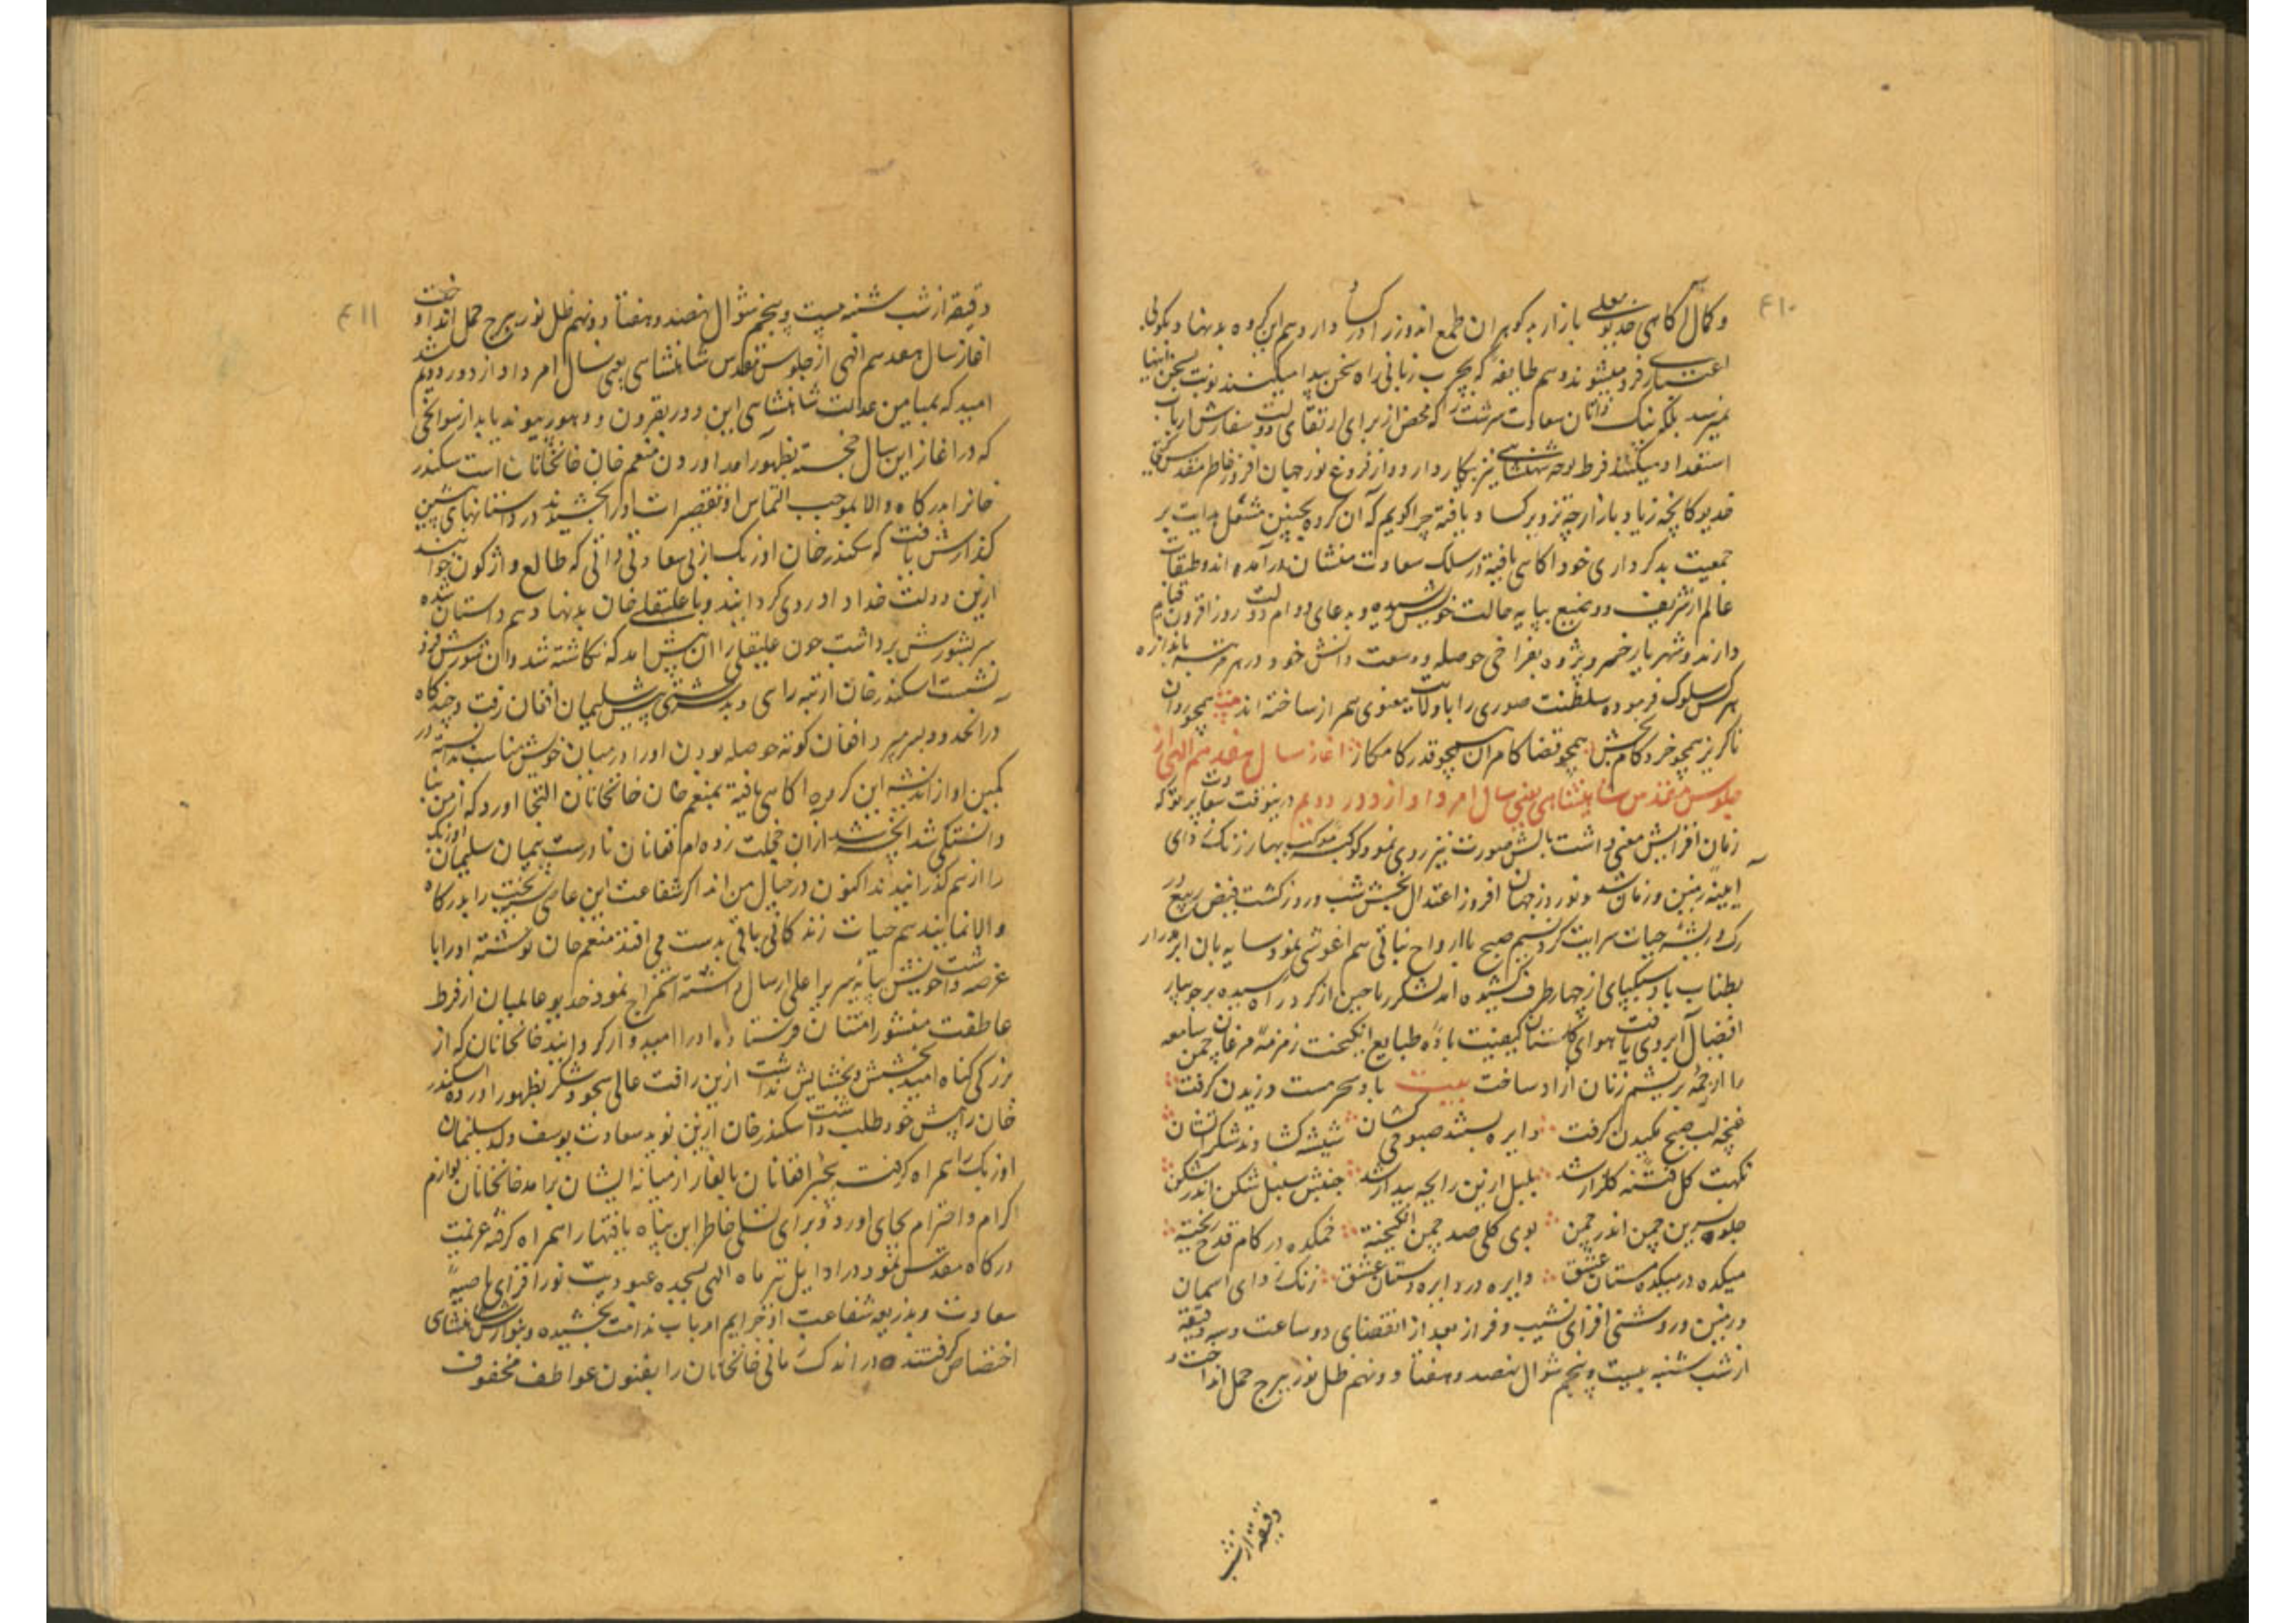 ۴۱۰
و کمال آگاهی خدیو معلی بازار بد گوهران طمع اندوز را کساد دارد هم این گروه بدنهاد بگوئی
اعتبار فرو میشوند و هم طایفه که بچرب زبانی راه سخن پیدا میکنند نوبت بسخن اینها
نمیرسد بلکه نیک ذاتان سعادت سرشت را که محض از برای ارتقای دولت سفارش ارباب
استعداد میکنند فرط توجه شاهنشاهی نیز بکار دارد و از فروغ نور جهان افروز خاطر مقدس
خدیو کالبخه زیاد بازارچه تزویر کساد یافته چرا گویم که آن گروه بچنین مشعل هدایت بر
جمعیت بدکرداری خود آگاهی یافته در سلک سعادت منشان درآمده اند و طبقات
عالم از شریف و وضیع بپایه حالت خویش رسیده و بدعای دوام دولت روز افزون قیام
دارند و شهریار خرد پژوه بفراخی حوصله و وسعت دانش خود در هر مرتبه باندازه
هر کس سلوک فرموده سلطنت صوری را با ولایت معنوی همراز ساخته اند بیت همچو روان
ناگزیر همچو خرد کام بخش همچو قضا کامران همچو قدر کامکار آغاز سال هفدهم الهی از
جلوس مقدس شاهنشاهی یعنی سال امرداد از دور دویم درینوقت سعادت پرتو که
زمان افزایش معنی داشت بالش صورت نیز روی نمود کوکبه موکب بهار زنگ زدای
آیینه زمین و زمان شد و نوروز جهان افروز اعتدال بخش شب و روز گشت فیض ربیع در
رگ و ریشه حیات سرایت کرد نسیم صبح با ارواح نباتی هم آغوشی نمود سایه بان ابر مدرار
بطناب باد سبکپای از چهار طرف کشیده آمد لشکر ریاحین از گرد راه رسیده بر جویبار
افضال آبروی یافت هوای گلستان کیفیت باده طبایع انگیخت زمزمه مرغان چمن سامعه
را از نغمه بریشم زنان آزاد ساخت بیت باد سحر مست وزیدن گرفت
غنچه لب صبح مکیدن گرفت دایره بستند صبوحی کشان شیشه گشادند شکر لب نشان
نکهت گل فتنه گلزار شد بلبل ازین رایحه بیدار شد جنبش سنبل شکن اندر شکن
جلوه نسرین چمن اندر چمن بوی گلی صد چمن انگیخته خمکده در کام قدح ریخته
میکده در میکده مستان عشق دایره در دایره دستان عشق زنگ زدای آسمان
و زمین و روشنی افزای نشیب و فراز بعد از انقضای دو ساعت و سه دقیقه
از شب شنبه بیست و پنجم شوال نهصد و هفتاد و نهم ظل نور ببرج حمل انداخت و
دقیقه از شب
۴۱۱
دقیقه از شب شنبه بیست و پنجم شوال نهصد و هفتاد و نهم ظل نور ببرج حمل انداخت و
آغاز سال هفدهم الهی از جلوس مقدس شاهنشاهی یعنی سال امرداد از دور دویم شد
امید که بمیامن عدالت شاهنشاهی این دور بقرون و دهور پیوند یابد از سوانحی
که در آغاز این سال خجسته بظهور آمد آوردن منعم خان خانخانان است سکندر
خانرا بدرگاه والا بموجب التماس او تقصیرات او را بخشیدند در داستانهای پیشین
گذارش یافت که سکندر خان اوزبک از بی سعادتی ذاتی که طالع واژگون خوانند
ازین دولت خداداد روی گردانیده و با علیقلی خان بدنهاد هم داستان شده
سر بشورش برداشت چون علیقلی را آن پیش آمد که نگاشته شد و آن شورش فرو
نشست اسکندر خان از تبه رای و بد سرشتی پیش سلیمان افغان رفت و چندگاه
در آنحدود بسر میبرد افغان کوته حوصله بودن او را در میان خویش مناسب ندانسته در
کمین او از اندیشه این گروه آگاهی یافته بمنعم خان خانخانان التجا آورد که از من بنا
دانستگی شد آنچه شد از آن خجلت زده ام افغانان نادرست پیمان سلیمان اوزبک
را از هم گذرانیدند اکنون در خیال من اند اگر شفاعت این عاصی تیره بخت را بدرگاه
والا نمایند هم حیات زندگانی باقی بدست می افتد منعم خان نوشته او را با
عرضه داشت خویش بپایه سریر اعلی ارسال داشته استمزاج نمود خدیو عالمیان از فرط
عاطفت منشور امتنان فرستاده او را امیدوار گردانیدند خانخانان که از
بزرگی گناه امید بخشش و بخشایش نداشت ازین رافت عالی سجود شکر بظهور آورده سکندر
خان را پیش خود طلب داشت سکندر خان ازین نوید سعادت یوسف ولد سلیمان
اوزبک را همراه گرفت بیخبر افغانان بایلغار از میانه ایشان برآمد خانخانان لوازم
اکرام و احترام بجای آورد و برای تسلی خاطر این پناه یافتها را همراه گرفته عزیمت
درگاه مقدس نمود در اوایل تیر ماه الهی بسجده عبودیت نور افزای ناصیه
سعادت و بذریعه شفاعت او جرایم ارباب ندامت بخشیده و بنوازش شاهنشاهی
اختصاص گرفتند و در اندک زمانی خانخانان را بفنون عواطف محفوف